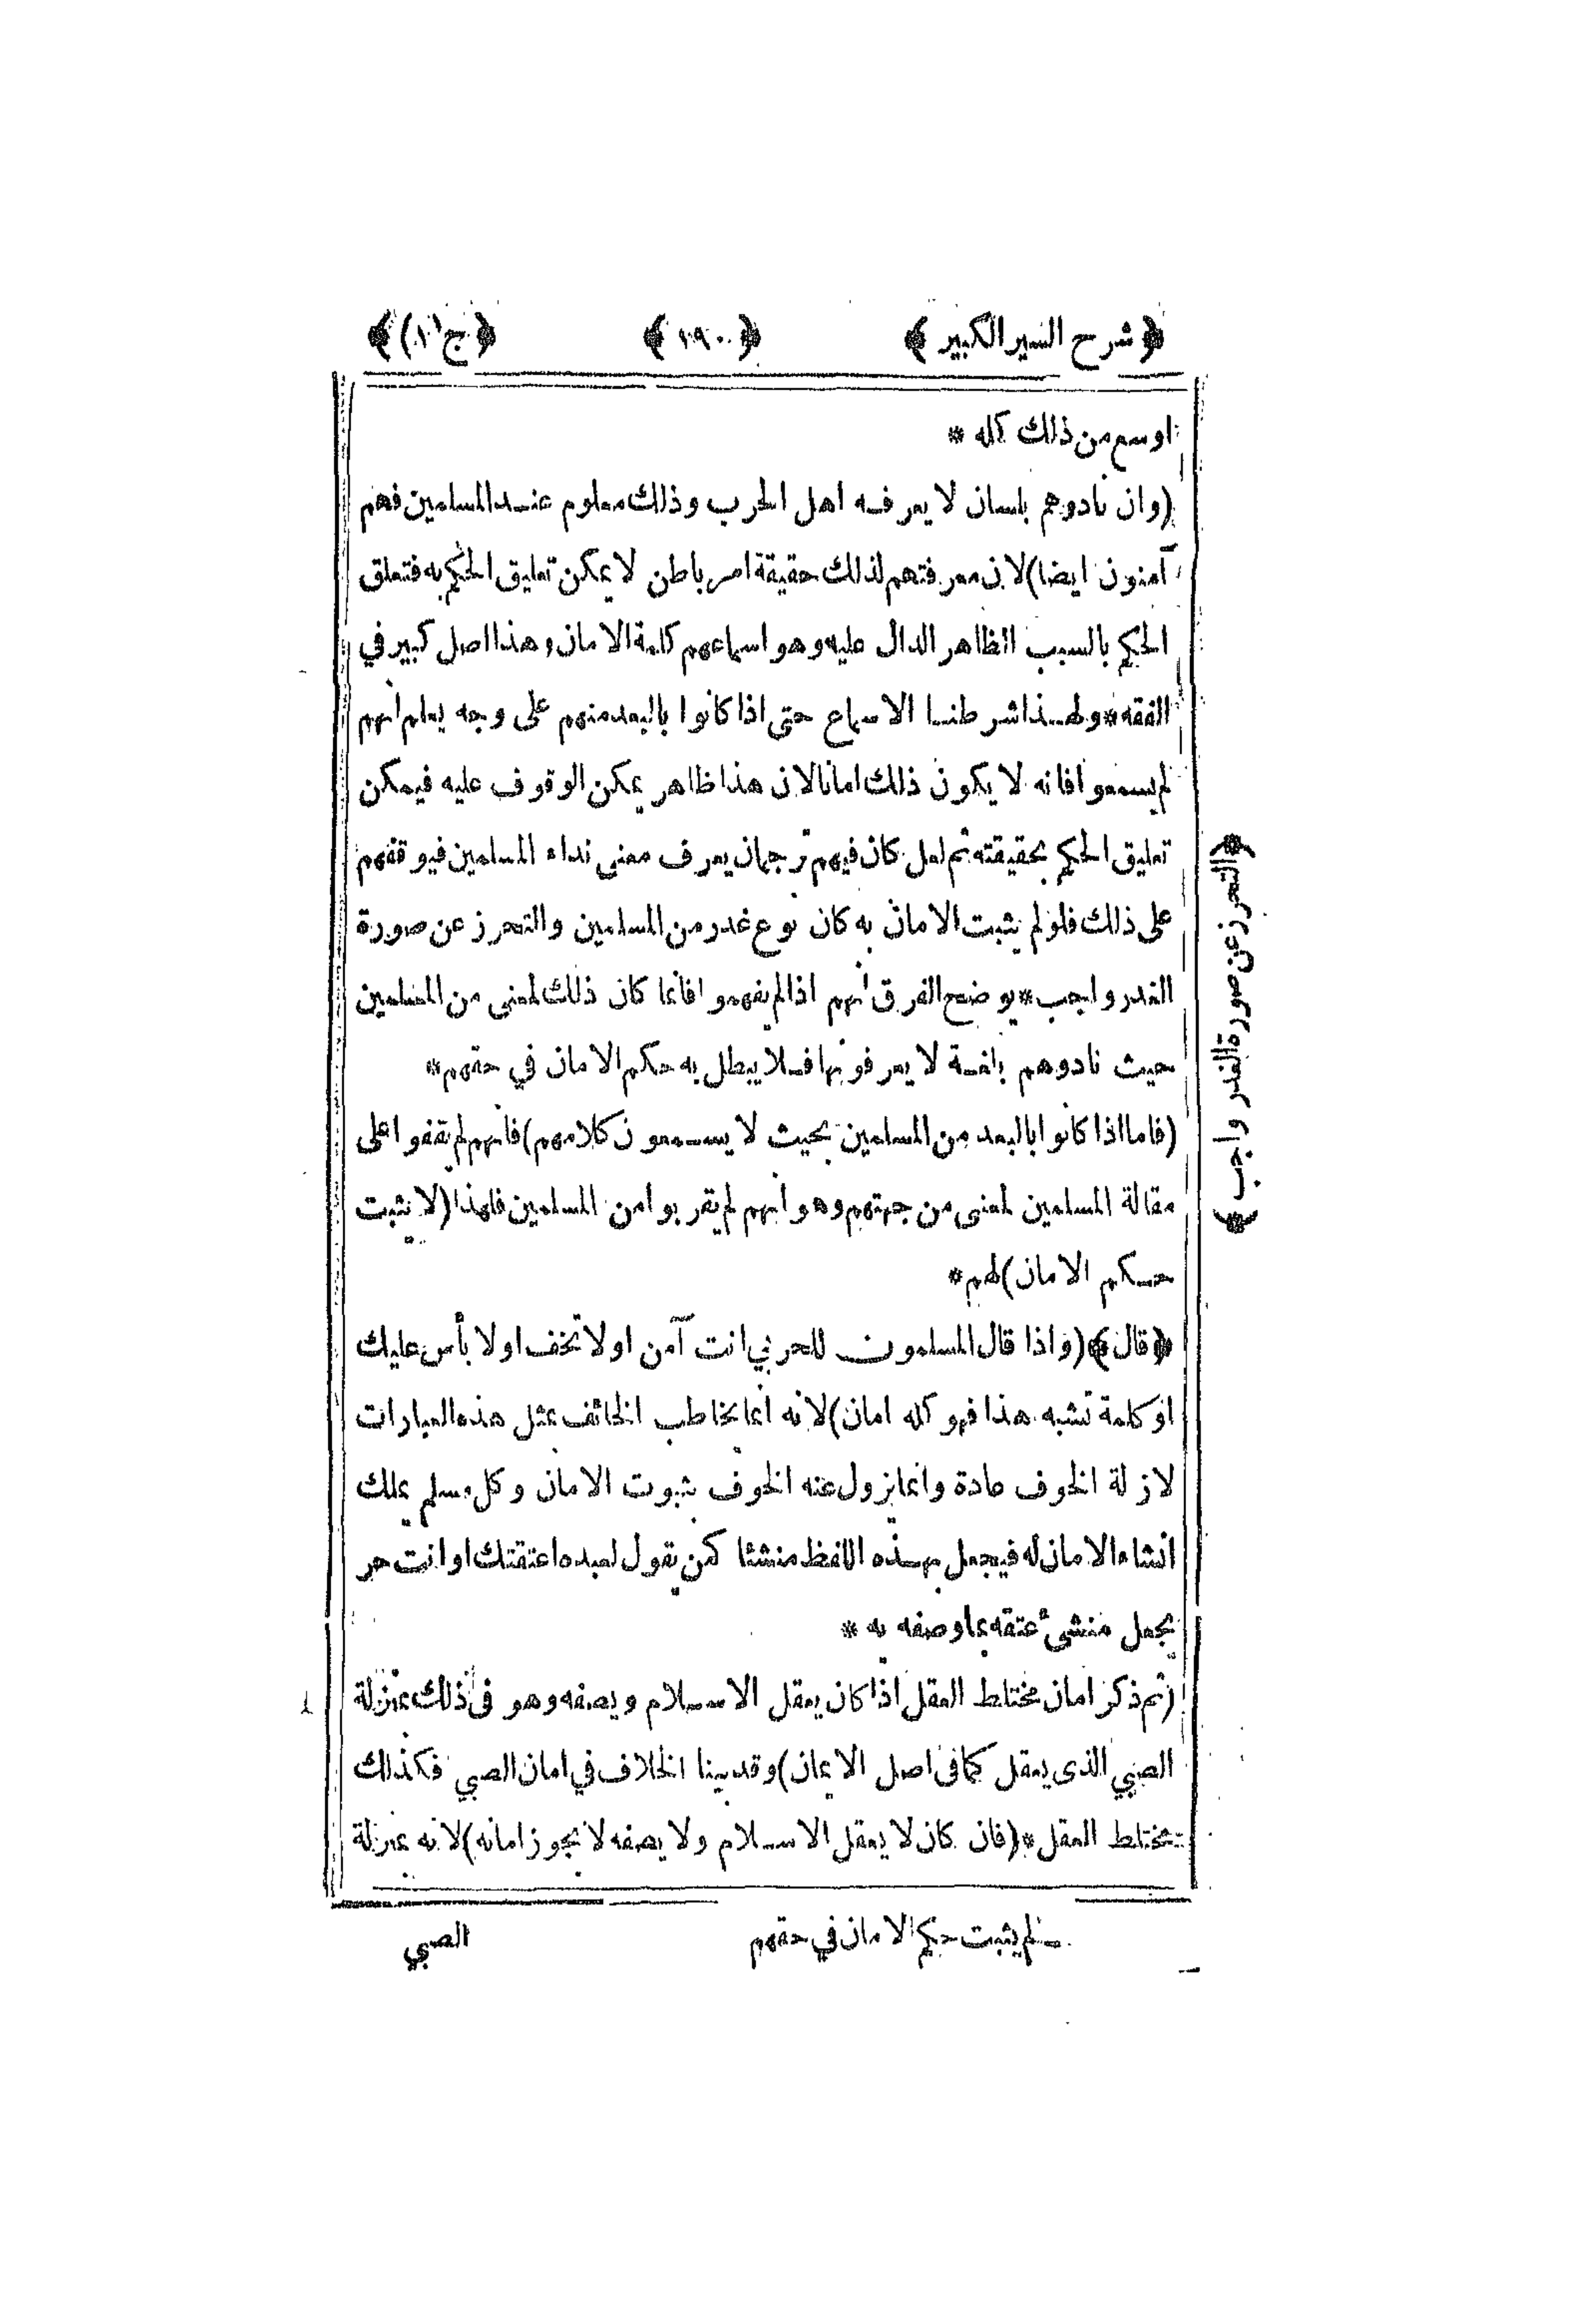 ﴿ شرح السير الكبير ﴾ ﴿ ١٩٠ ﴾ ﴿ ج (١) ﴾
اوسع من ذلك كله *
(وان نادوهم بلسان لا يعرفه اهل الحرب وذلك معلوم عند المسلمين فهم
آمنون ايضا) لان معرفتهم لذلك حقيقة امر باطن لا يمكن تعليق الحكم به فتعلق
الحكم بالسبب الظاهر الدال عليه وهو اسماعهم كلمة الامان وهذا اصل كبير في
الفقه * ولهذا شرطنا الاسماع حتى اذا كانوا بالبعد منهم على وجه يعلم انهم
لم يسمعوا فانه لا يكون ذلك امانا لان هذا ظاهر يمكن الوقوف عليه فيمكن
تعليق الحكم بحقيقته ثم لعل كان فيهم ترجمان يعرف معنى نداء المسلمين فيوقفهم
على ذلك فلو لم يثبت الامان به كان نوع غدر من المسلمين والتحرز عن صورة
الغدر واجب * يوضح الفرق انهم اذا لم يفهموا فانما كان ذلك لمعنى من المسلمين
حيث نادوهم بلغة لا يعرفونها فلا يبطل به حكم الامان في حقهم *
(فاما اذا كانوا بالبعد من المسلمين بحيث لا يسمعون كلامهم) فانهم لم يقفوا على
مقالة المسلمين لمعنى من جهتهم وهو انهم لم يقربوا من المسلمين فلهذا (لا يثبت
حكم الامان) لهم *
﴿ قال ﴾ (واذا قال المسلمون للحربي انت آمن او لا تخف او لا بأس عليك
او كلمة تشبه هذا فهو كله امان) لانه انما يخاطب الخائف بمثل هذه العبارات
لازلة الخوف عادة وانما يزول عنه الخوف بثبوت الامان وكل مسلم يملك
انشاء الامان له فيجعل بهذه اللفظ منشئا كمن يقول لعبده اعتقتك او انت حر
يجعل منشئ عتقه بما وصفه به *
(ثم ذكر امان مختلط العقل اذا كان يعقل الاسلام ويصفه وهو فى ذلك بمنزلة
الصبي الذى يعقل كما فى اصل الايمان) وقد بينا الخلاف في امان الصبي فكذلك
مختلط العقل * (فان كان لا يعقل الاسلام ولا يصفه لا يجوز امانه) لانه بمنزلة
لم يثبت حكم الامان في حقهم
الصبي
﴿ التحرز عن صورة الغدر واجب ﴾